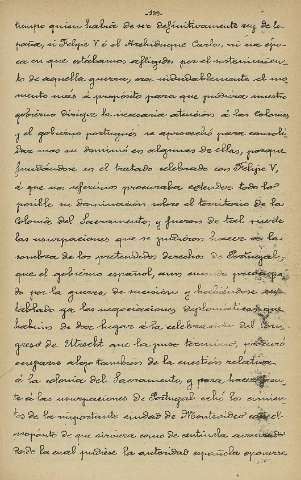 tiempo quien habia de ser definitivamente rey de Es-
paña, si Felipe V ó el Archiduque Carlos, ni una épo-
ca en que estábamos afligidos por el sostenimien-
to de aquella guerra, era indudablemente el mo-
mento más á propósito para que pudiera nuestro
gobierno dirigir la necesaria atención á las colonias,
y el gobierno portugués se aprovechó para consoli-
dar mas su dominio en algunas de ellas, porque
fundándose en el tratado celebrado con Felipe V,
á que nos referimos procuraba extender todo lo
posible su dominación sobre el territorio de la
Colonia del Sacramento, y fueron de tal suerte
las usurpaciones que se pudieron hacer á la
sombra de los pretendidos derechos de Portugal,
que el gobierno español, aun
do por la guerra, de sucesión y habiéndose en-
tablado ya las negociaciones diplomáticas que
habian de dar lugar á la celebración del Con-
greso de Utrecht que la puso término, procuró
ocuparse algo tambien de la cuestión relativa
á la colonia del Sacramento, y para hacer fren-
te á las usurpaciones de Portugal echó los cimien-
tos de la importante ciudad de Montevideo con el
propósito de que sirviera como de centinela avanzado
desde la cual pudiese la autoridad española oponerse